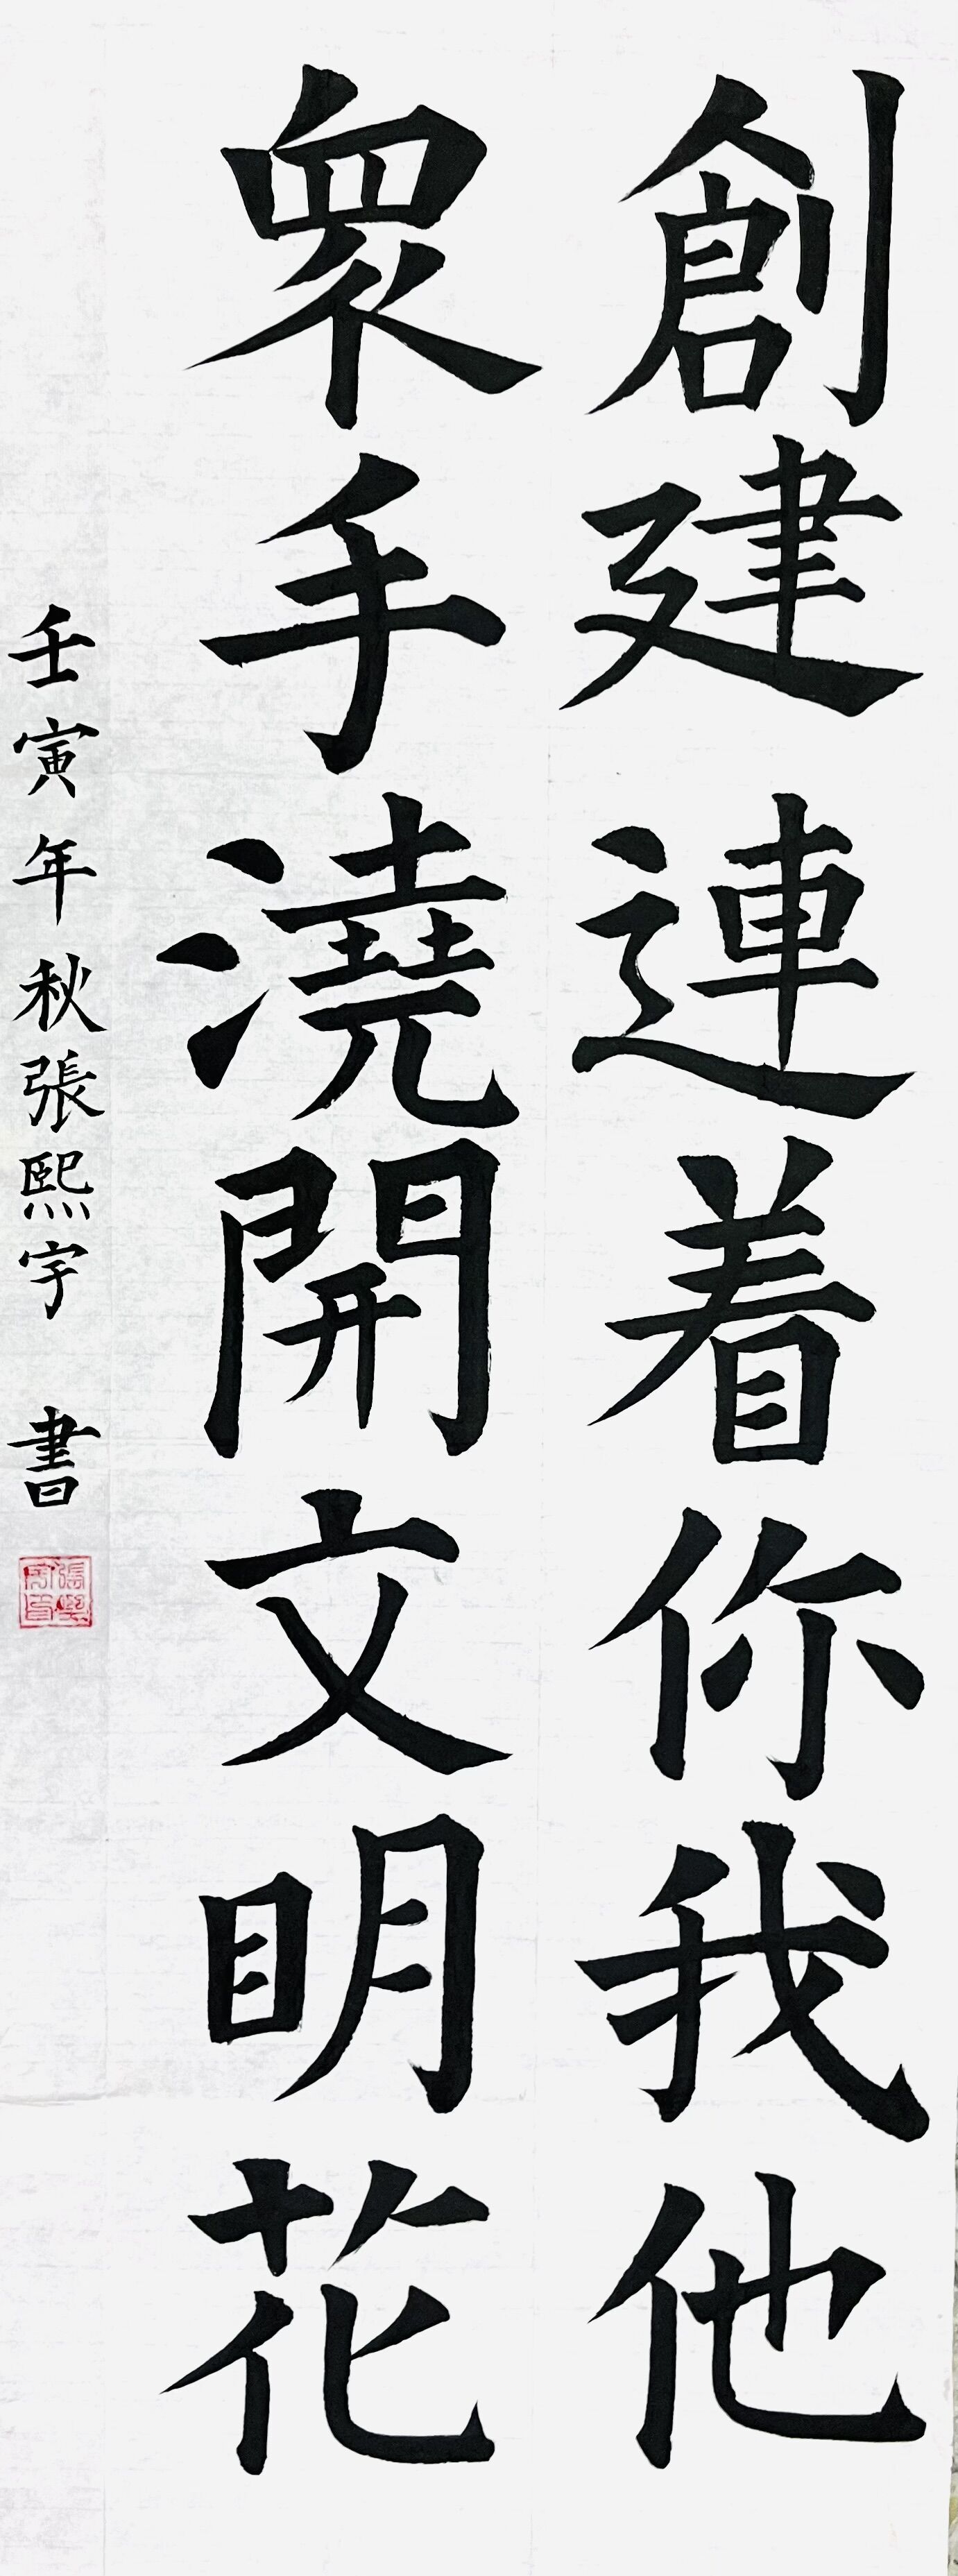 創建連着你我他
衆手澆開文明花
壬寅年秋張熙宇書